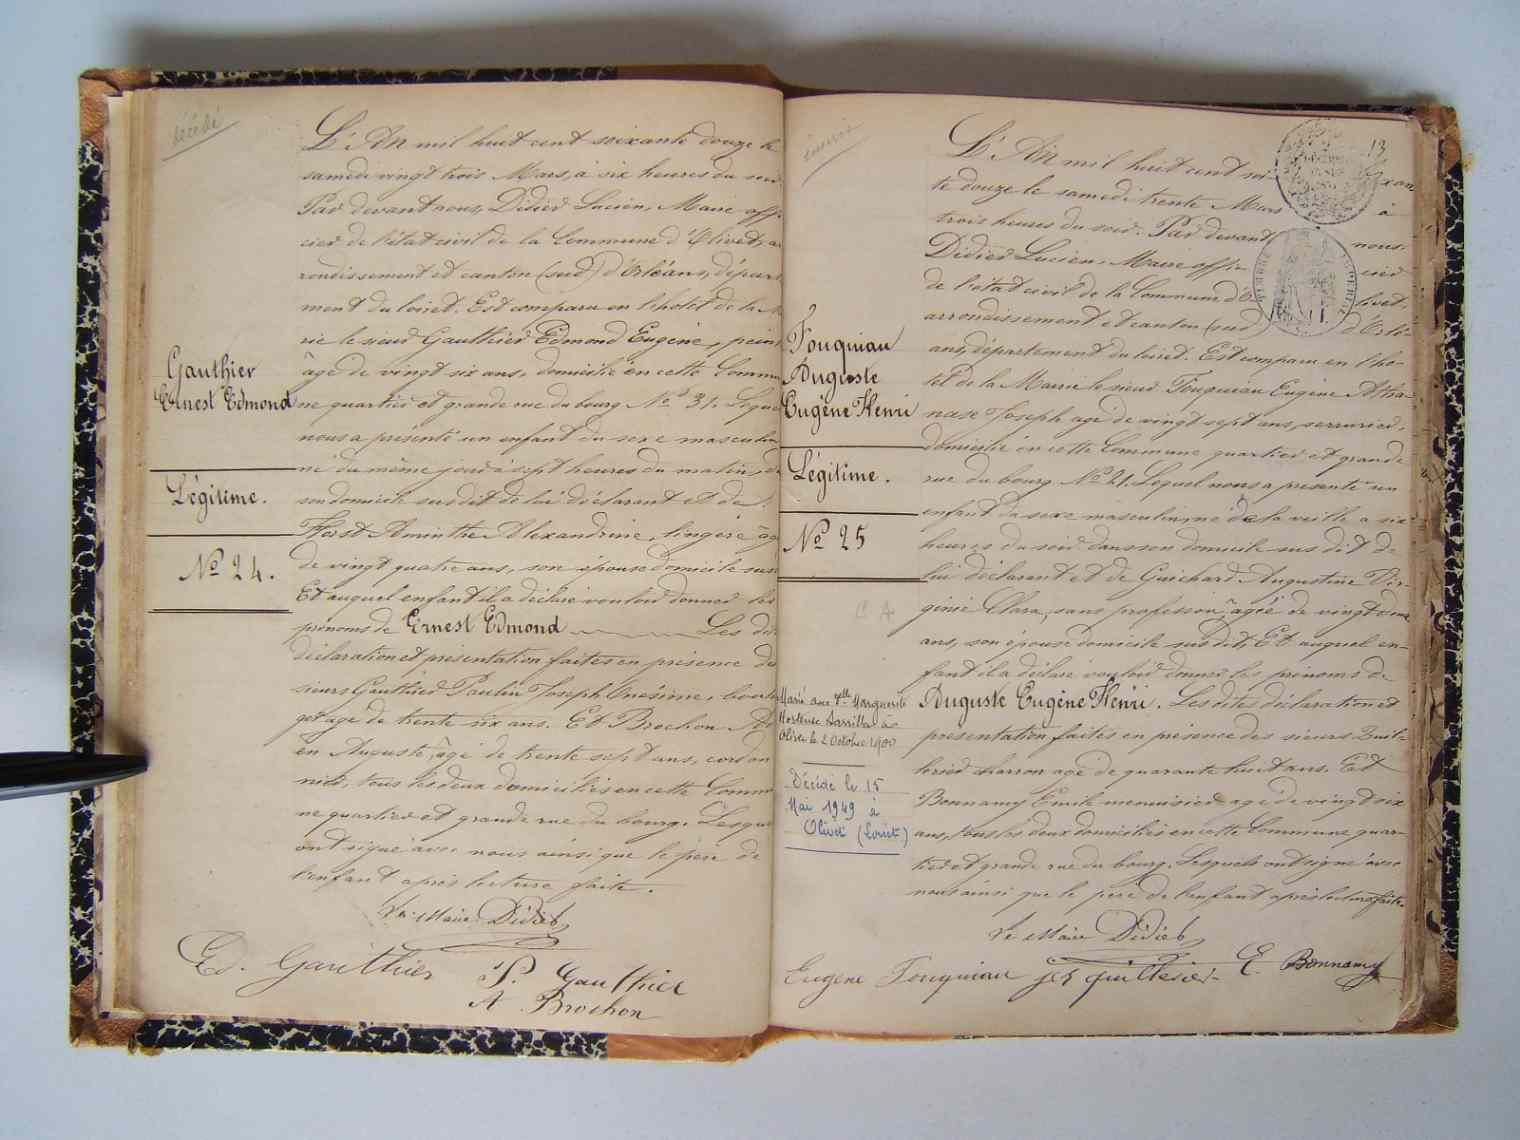 décédé
Gauthier
Ernest Edmond
Légitime.
Nº 24.
L'An mil huit cent soixante douze le
samedi vingt trois Mars, à six heures du soir
Par devant nous, Didier Lucien, Maire offi
cier de l'état civil de la Commune d'Olivet, ar
rondissement et canton (sud) d'Orléans, départ
ment du loiret. Est comparu en l'hotel de la M
rie le sieur Gauthier Edmond Eugène, peint
âgé de vingt six ans, domicilié en cette Commu
ne quartier et grande rue du bourg Nº 31. Lequel
nous a présenté un enfant du sexe masculin
né du même jour à sept heures du matin, da
son domicile sus dit de lui déclarant et de
Aminthe Alexandrine, lingère âg
de vingt quatre ans, son épouse domicile sus
Et auquel enfant il a déclaré vouloir donner les
prénoms de Ernest Edmond Les dit
déclaration et présentation faites en présence des
sieurs Gauthier Paulin Joseph Onésime,
âgé de trente six ans. Et Brochon
en Auguste, âgé de trente sept ans, cordon
nier, tous les deux domiciliés en cette Commu
ne quartier et grande rue du bourg. Lesque
ont signé avec nous ainsi que le père de
l'enfant après lecture faite.
Le Maire Didier
Ed. Gauthier
P. Gauthier
A. Brochon
13
Fouquiau
Auguste
Eugène Henri
Légitime.
Nº 25
Marié avec Mlle Marguerite
Hortense
Olivet le 2 Octobre 1900
Décédé le 15
Mai 1949 à
Olivet (Loiret)
L'An mil huit cent soixan
te douze le samedi trente Mars à
trois heures du soir. Par devant nous.
Didier Lucien, Maire officier
de l'état civil de la Commune d'Olivet,
arrondissement et canton (sud) d'Orlé
ans, département du loiret. Est comparu en l'ho-
tel de la Mairie le sieur Fouquiau Eugène Atha-
nase Joseph agé de vingt sept ans, serrurier,
domicilié en cette Commune quartier et grande
rue du bourg Nº 21. Lequel nous a présenté un
enfant du sexe masculin, né de la veille a six
heures du soir dans son domicile sus dit de
lui déclarant et de Guichard Augustine Vir-
ginie Clara, sans profession, âgée de vingt
ans, son épouse domicile sus dit, Et auquel en-
fant il a déclaré vouloir donner les prénoms de
Auguste Eugène Henri. Les dites déclaration et
présentation faites en présence des sieurs Quil-
lerier charron agé de quarante huit ans. Et
Bonnamy Emile menuisier agé de vingt six
ans, tous les deux domiciliés en cette Commune quar-
tier et grande rue du bourg. Lesquels ont signé avec
nous ainsi que le père de l'enfant après lecture faite.
Le Maire Didier
Eugène Fouquiau
E. Bonnamy